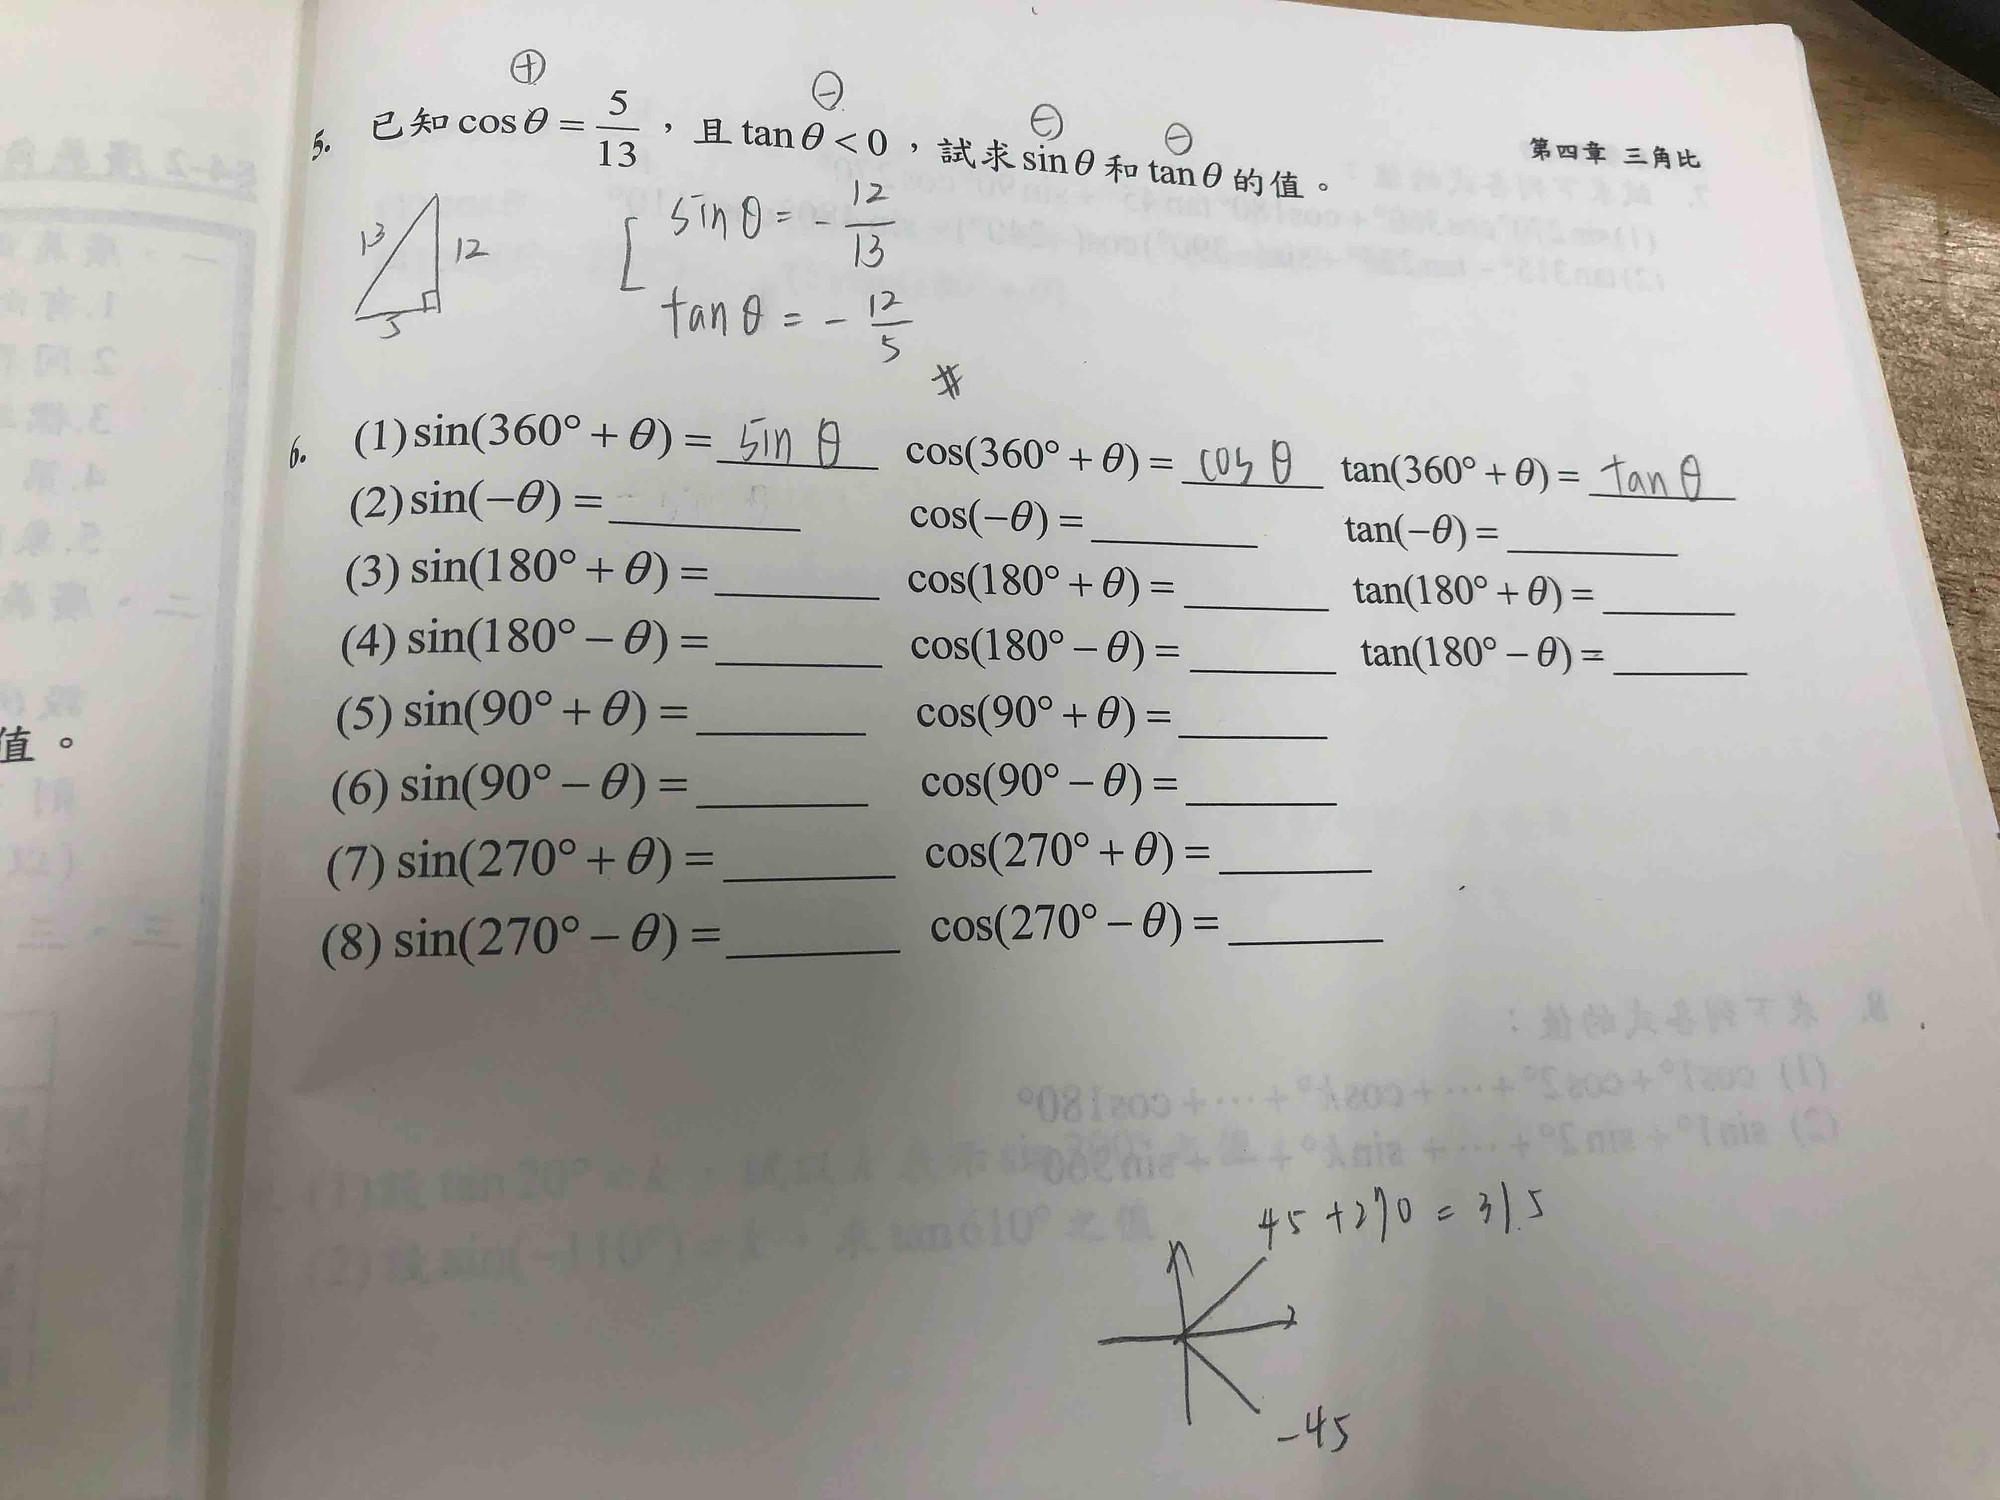 第四章 三角比
⊕ ⊖ ⊖ ⊖
5. 已知 cosθ = 5/13，且 tanθ < 0，試求 sinθ 和 tanθ 的值。
13 12 5
sinθ = - 12/13
tanθ = - 12/5
#
6. (1) sin(360° + θ) = sin θ cos(360° + θ) = cos θ tan(360° + θ) = tan θ
(2) sin(−θ) = ______ cos(−θ) = ______ tan(−θ) = ______
(3) sin(180° + θ) = ______ cos(180° + θ) = ______ tan(180° + θ) = ______
(4) sin(180° − θ) = ______ cos(180° − θ) = ______ tan(180° − θ) = ______
(5) sin(90° + θ) = ______ cos(90° + θ) = ______
(6) sin(90° − θ) = ______ cos(90° − θ) = ______
(7) sin(270° + θ) = ______ cos(270° + θ) = ______
(8) sin(270° − θ) = ______ cos(270° − θ) = ______
值。
45 + 270 = 315
-45